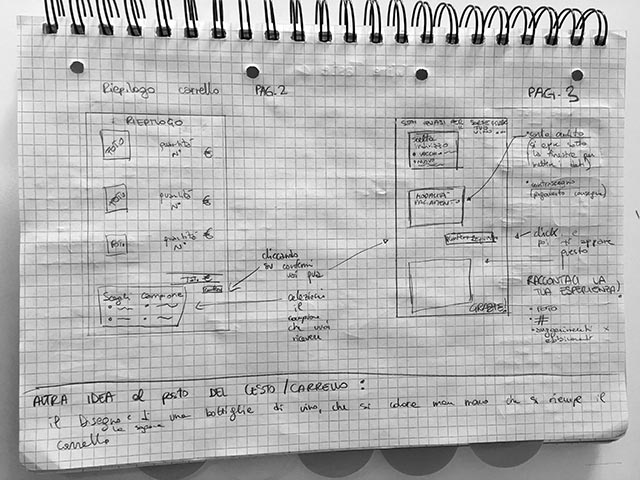 Riepilogo carrello PAG. 2
RIEPILOGO
FOTO quantità N° €
FOTO quantità N° €
FOTO quantità N° €
TOT. €
Scegli campione
cliccando
su conferma
vai qua
selezioni
il
campione
che vuoi
ricevere
PAG. 3
SEI QUASI PER
scelta
indirizzo
• VECCHIO
• NUOVO
MODALITÀ
PAGAMENTO
GRAZIE!
• carta credito
(si apre sotto
la finestra per
mettere i dati)
• contrassegno
(pagamento consegna)
click e
poi ti appare
questo
RACCONTACI LA
TUA ESPERIENZA!
• FOTO
• #
• suggerimenti x
ALTRA IDEA al posto DEL CESTO/CARRELLO:
il disegno di una bottiglia di vino, che si colora man mano che si riempie il
carrello